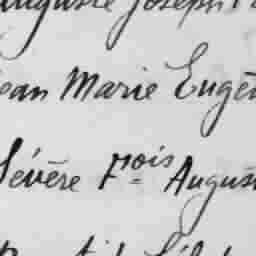 Auguste Joseph
Jean Marie Eugè
Sévère F.ois Augus